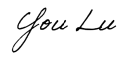 You Lu